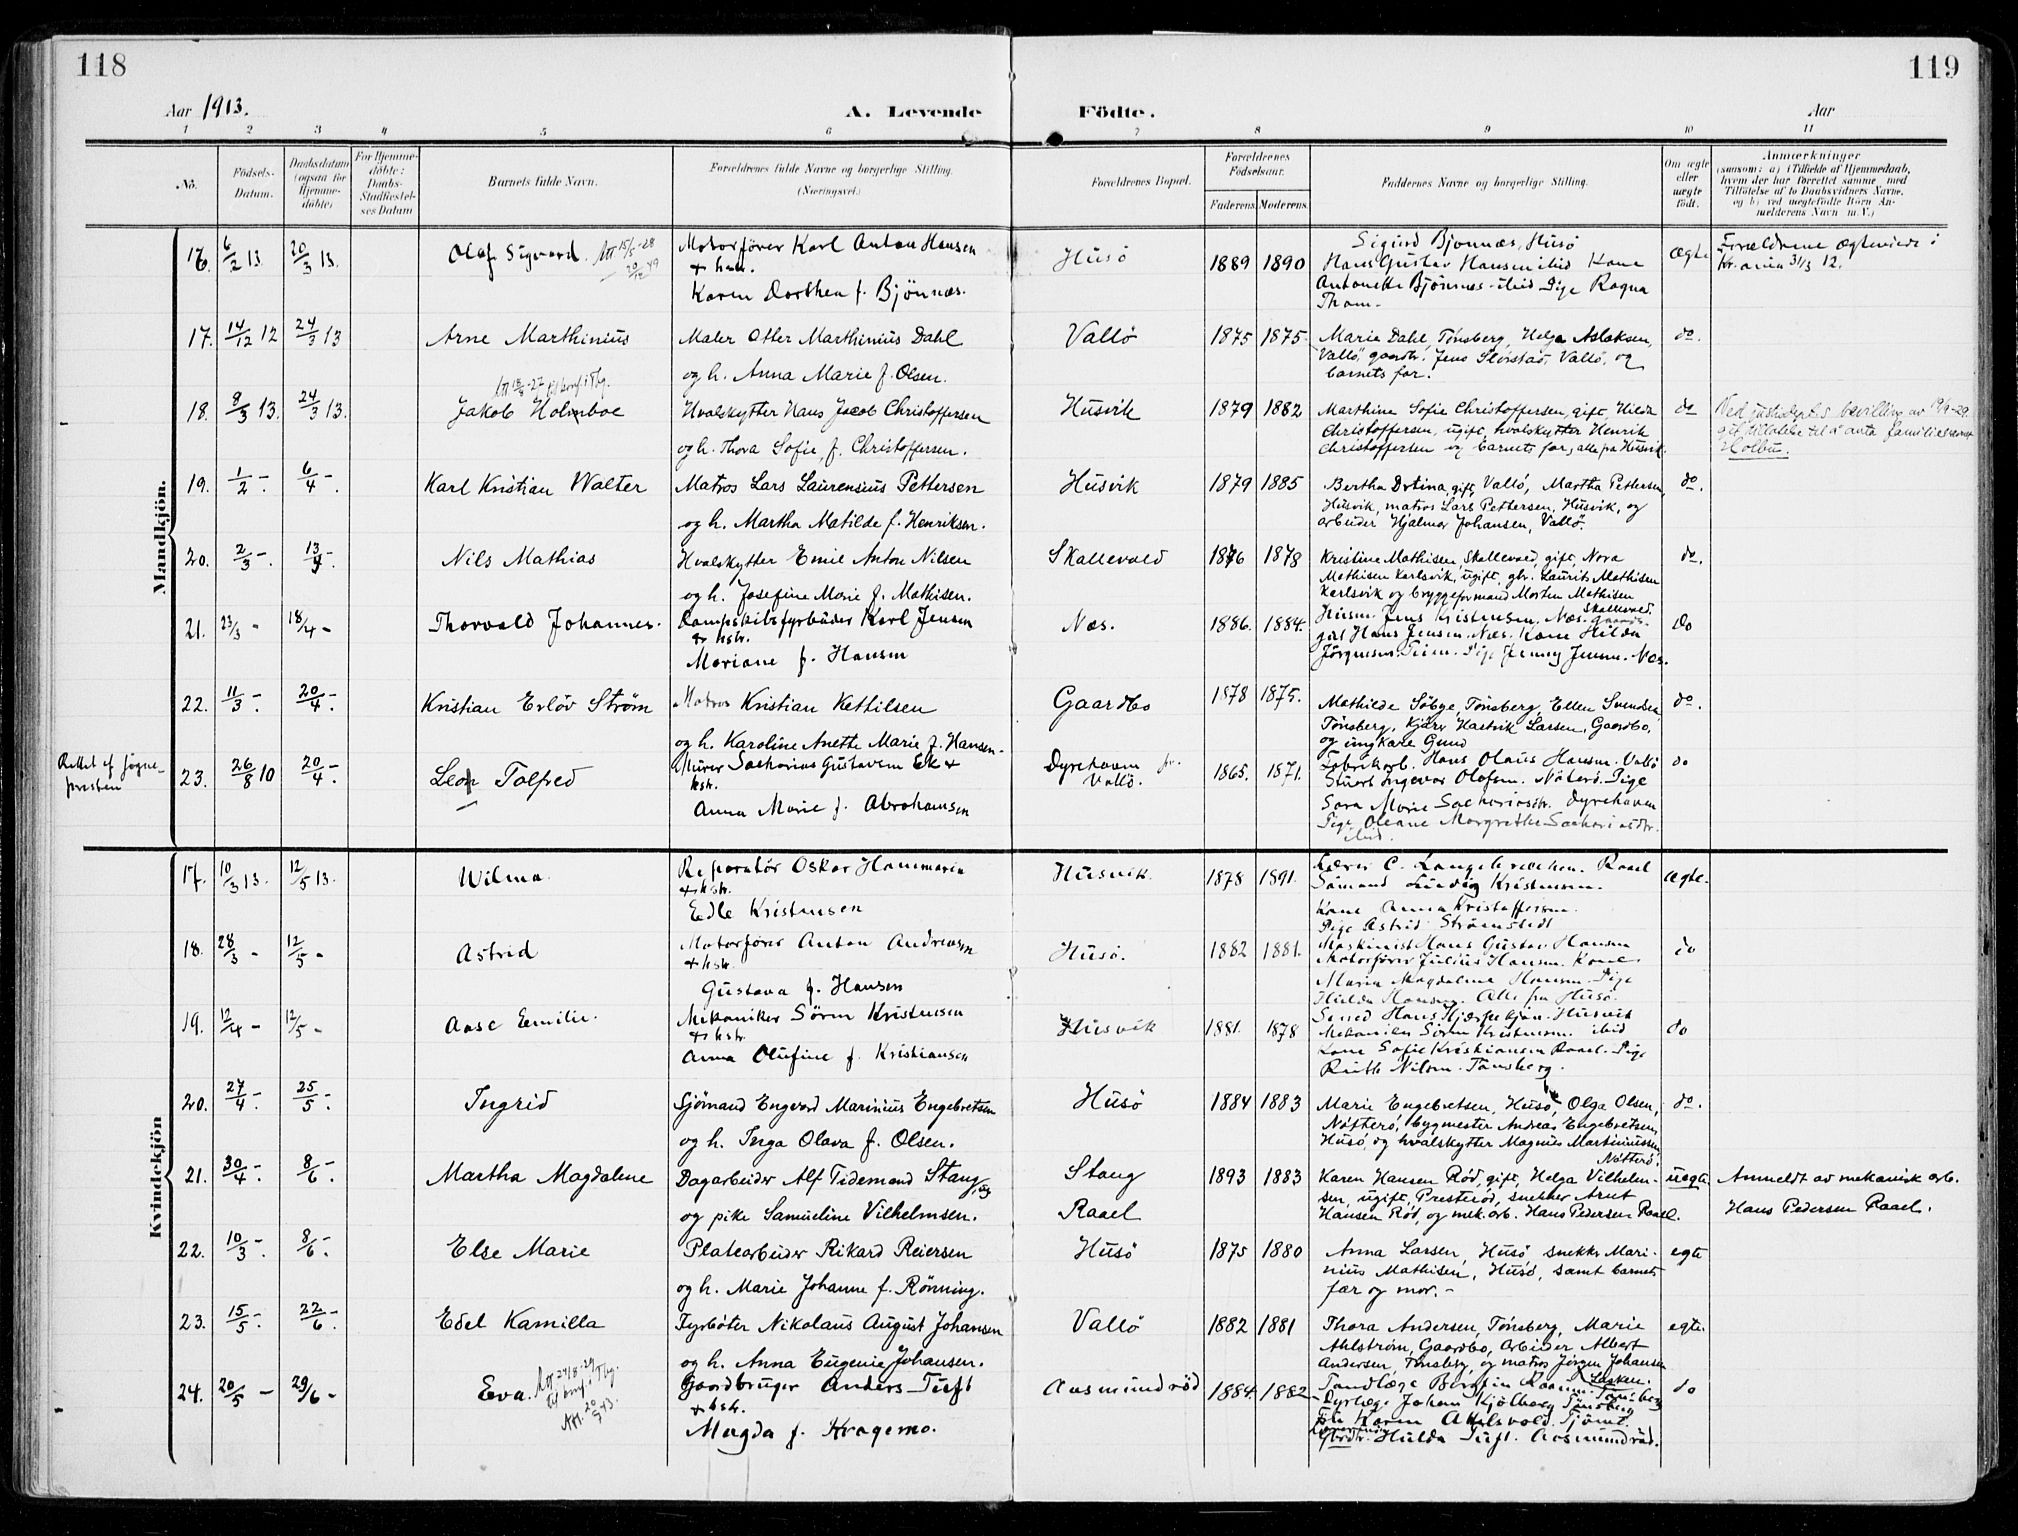 118
119
Aar 1913.
A. Levende Födte.
Aar
1 2 3 4 5 6 7 8 9 10 11
No.
Födsels-Datum.
Daabsdatum (ogsaa for Hjemme-döbte)
For Hjemme-döbte: Daabs-Stadfæstel-ses Datum
Barnets fulde Navn.
Forældrenes fulde Navne og borgerlige Stilling. (Næringsvei.)
Forældrenes Bopæl.
Forældrenes Födselsaar. Faderens. Moderens.
Faddernes Navne og borgerlige Stilling.
Om ægte eller uægte födt.
Anmærkninger
(saasom: a) i Tilfælde af Hjemmedaab, hvem der har forrettet samme med Tilföielse af to Daabsvidners Navne, og b) ved uægtefödte Börn An-melderens Navn m. V.)
Mandkjön.
16. 6/2 13. 20/3 13. Olaf Sigvard. Att 15/5-28 20/12 49
Motorfører Karl Anton Hansen
+ hstr.
Karen Dorthea f. Bjönnæs.
Husö 1889 1890
Sigurd Bjonnæs, Husö
Hans Gustav Hansen ibid Kone
Antonette Bjönnæs ibid Pige Ragna
Thom-
Ægte
Forældrene ægteviede i
Kr.ania 31/3 12.
17. 14/12 12 24/3 13 Arne Marthinius
Maler Otter Marthinius Dahl
og h. Anna Marie f. Olsen.
Vallö 1875 1875
Marie Dahl, Tönsberg, Helga Aslaksen,
Vallö, gaardbr. Jens Slörstad, Vallö, og
barnets far.
do.
18. 8/3 13. 24/3 13. Jakob Holmboe
Hvalskytter Hans Jacob Christoffersen
og h. Thora Sofie, f. Christoffersen.
Husvik 1879 1882
Marthine Sofie Christoffersen, gift, Hilda
Christoffersen, ugift, hvalskytter Henrik
Christoffersen og barnets far, alle fra Husvik.
do
Ved justisdeptets bevilling av 19/9-29
git tillatelse til å anta familienavnet
Holbu.
19. 1/2 -. 6/4 -. Karl Kristian Walter
Matros Lars Laurensius Pettersen
og h. Martha Matilde f. Henriksen.
Husvik 1879 1885
Bertha Dotina, gift, Vallö, Martha Pettersen,
Husvik, matros Lars Pettersen, Husvik, og
arbeider Hjalmar Johansen, Vallö.
do.
20. 2/3 -. 13/4 -. Nils Mathias
Hvalskytter Emil Anton Nilsen
og h. Josefine Marie f. Mathisen.
Skallevold 1876 1878
Kristine Mathisen Skallevold, gift, Nora
Mathisen Karlsvik, ugift, gbr. Laurits Mathisen
Karlsvik og bryggeformand Morten Mathisen
Skallevold.
do.
21. 23/3 - 18/4 - Thorvald Johannes.
Dampskibsfyrböder Karl Jensen
+ hstr.
Mariane f. Hansen
Næs. 1886. 1884.
Husm. Jens Kristensen. Næs. Gaards-
gut Hans Jensen. Næs. Kone Hilda
Jörgensen. Pige Jenny Jensen. Næs.
do
22. 11/3 -. 20/4 -. Kristian Erlöv Ström
Matros Kristian Kettilsen
og h. Karoline Anette Marie f. Hansen.
Gaardbo 1878 1875.
Mathilde Söbye, Tönsberg, Ellen Svendsen
Tönsberg, Kjær Hastvik Larsen, Gaardbo,
og ungkare Gund
do.
Rettet af sogne-
presten
23. 26/8 10 20/4 -. Leon Tolfred
Murer Sacharias Gustavsen Ek +
hstr.
Anna Marie f. Abrahamsen
Dyrehaven pr. Vallö. 1865. 1871.
Fabrikarb. Hans Olaus Hansen. Vallö
Stuert Ingevar Olofsen. Nöterö. Pige
Sara Marie Sachariasdtr. Dyrehaven
Pige Oleane Margrethe Sachariasdtr.
ibid.
do
Kvindekjön
17. 10/3 13. 12/5 13. Wilma.
Reparatör Oskar Hammarin
+ hstr.
Edle Kristensen
Husvik. 1878 1891.
Lærer C. Langebrekken. Raael
Sömand Ludvig Kristensen.
Kone Anna Kristoffersen.
Pige Astrid Strömstedt
Ægte.
18. 28/3 - 12/5 - Astrid
Motorförer Anton Andreasen
+ hstr.
Gustava f. Hansen
Husö. 1882 1881.
Maskinist Hans Gustav Hansen
Motorförer Julius Hansen. Kone
Maria Magdalene Hansen. Pige
Hilda Hansen. Alle fra Husö.
do
19. 12/4 - 12/5 - Aase Emilie.
Mekaniker Sören Kristensen
+ hstr.
Anna Olufine f. Kristiansen
Husvik 1881. 1878
Smed Hans Husvik
Mekaniker Sören Kristensen. ibid
Kone Sofie Kristiansen Raael. Pige
Ruth Nilsen. Tönsberg.
do
20. 27/4 -. 25/5 -. Ingrid
Sjömand Engvard Marinius Engebretsen
og h. Inga Olava f. Olsen.
Husö 1884 1883
Marie Engebretsen, Husö, Olga Olsen,
Nötterö, bygmester Andreas Engebretsen,
Husö, og hvalskytter Magnus Martinussen
Nötterö.
do.
21. 30/4 -. 8/6 -. Martha Magdalene
Dagarbeider Alf Tidemand Stang
og pike Samueline Vilhelmsen.
Stang
Raael
1893 1883
Karen Hansen Röd, gift, Helga Vilhelm-
sen, ugift, Presteröd, snekker Arnt
Hansen Röd, og mek.arb. Hans Pedersen Raael.
uegte.
Anmeldt av mekanisk arb.
Hans Pedersen Raael.
22. 10/3 -. 8/6 -. Else Marie
Platearbeider Rikard Reiersen
og h. Marie Johanne f. Rönning.
Husö 1875 1880
Anna Larsen, Husö snekker Mari-
nius Mathisen, Husö, samt barnets
far og mor. -
egte
23. 15/5 -. 22/6 -. Edel Kamilla
Fyrböter Nikolaus August Johansen
og h. Anna Eugenie Johansen.
Vallö 1882 1881
Thora Andersen, Tönsberg, Marie
Ahlström, Gaardbo, Arbeider Albert
Andersen, Tönsberg, og matros Jörgen Johansen
egte.
24. 20/5 - 29/6 - Eva. Att. 20/5 43.
Gaardbruger Anders Tuft
+ hstr.
Magda f. Kragemo.
Aasmundröd 1884. 1882
Tandlæge Tönsberg
Dyrlæge Johan Kjölberg Tönsberg
Frk Karen Akelsvold. Tjömö.
Gbrdtr. Hulda Tuft. Aasmundröd.
do